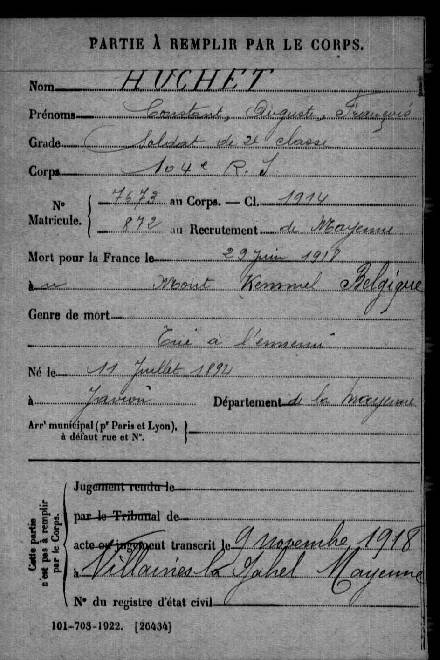 PARTIE À REMPLIR PAR LE CORPS.
Nom HUCHET
Prénoms Constant, Auguste, François
Grade Soldat de 2e classe
Corps 104e R. I
N° Matricule. { 7673 au Corps. — Cl. 1914
872 au Recrutement de Mayenne
Mort pour la France le 29 juin 1918
à Mont Kemmel Belgique
Genre de mort
Tué à l'ennemi
Né le 11 Juillet 1894
à Javron Département de la Mayenne
Arrt municipal (pr Paris et Lyon), à défaut rue et N°. }
Cette partie n'est pas à remplir par le Corps.
Jugement rendu le
par le Tribunal de
acte ou jugement transcrit le 9 novembre 1918
à Villaines-la-Juhel Mayenne
N° du registre d'état civil
101-708-1922. [26434]